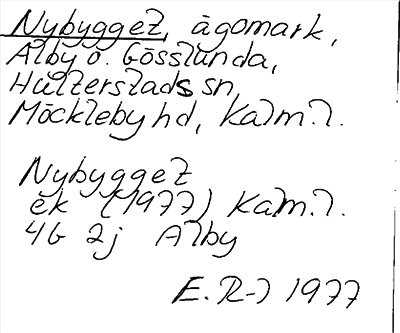 Nybygget, ägomark,
Alby o. Gösslunda,
Hulterstads sn,
Möckleby hd, Kalm.l.
Nybygget
ek (1977) Kalm.l.
4G 2j Alby
E.R-l 1977